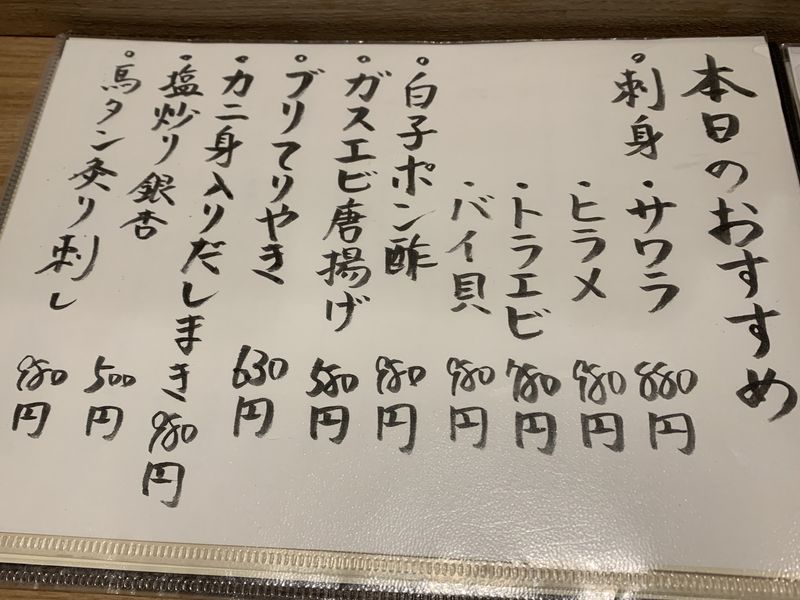 本日のおすすめ
。刺身・サワラ 880円
・ヒラメ 980円
・トラエビ 780円
・バイ貝 980円
。白子ポン酢 980円
。ガスエビ唐揚げ 580円
。ブリてりやき 630円
。カニ身入りだしまき 980円
。塩炒り銀杏 500円
。馬タン炙り刺し 980円